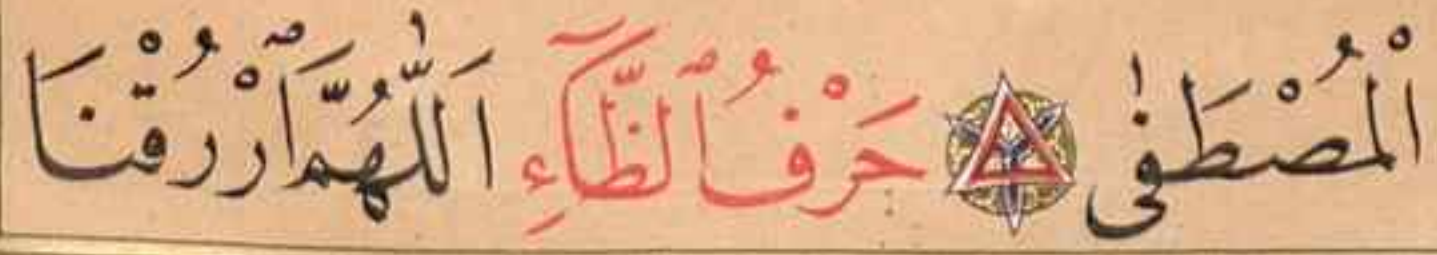 الْمُصْطَفٰى حَرْفُ ٱلظَّآءِ اَللّٰهُمَّ ٱرْزُقْنَا